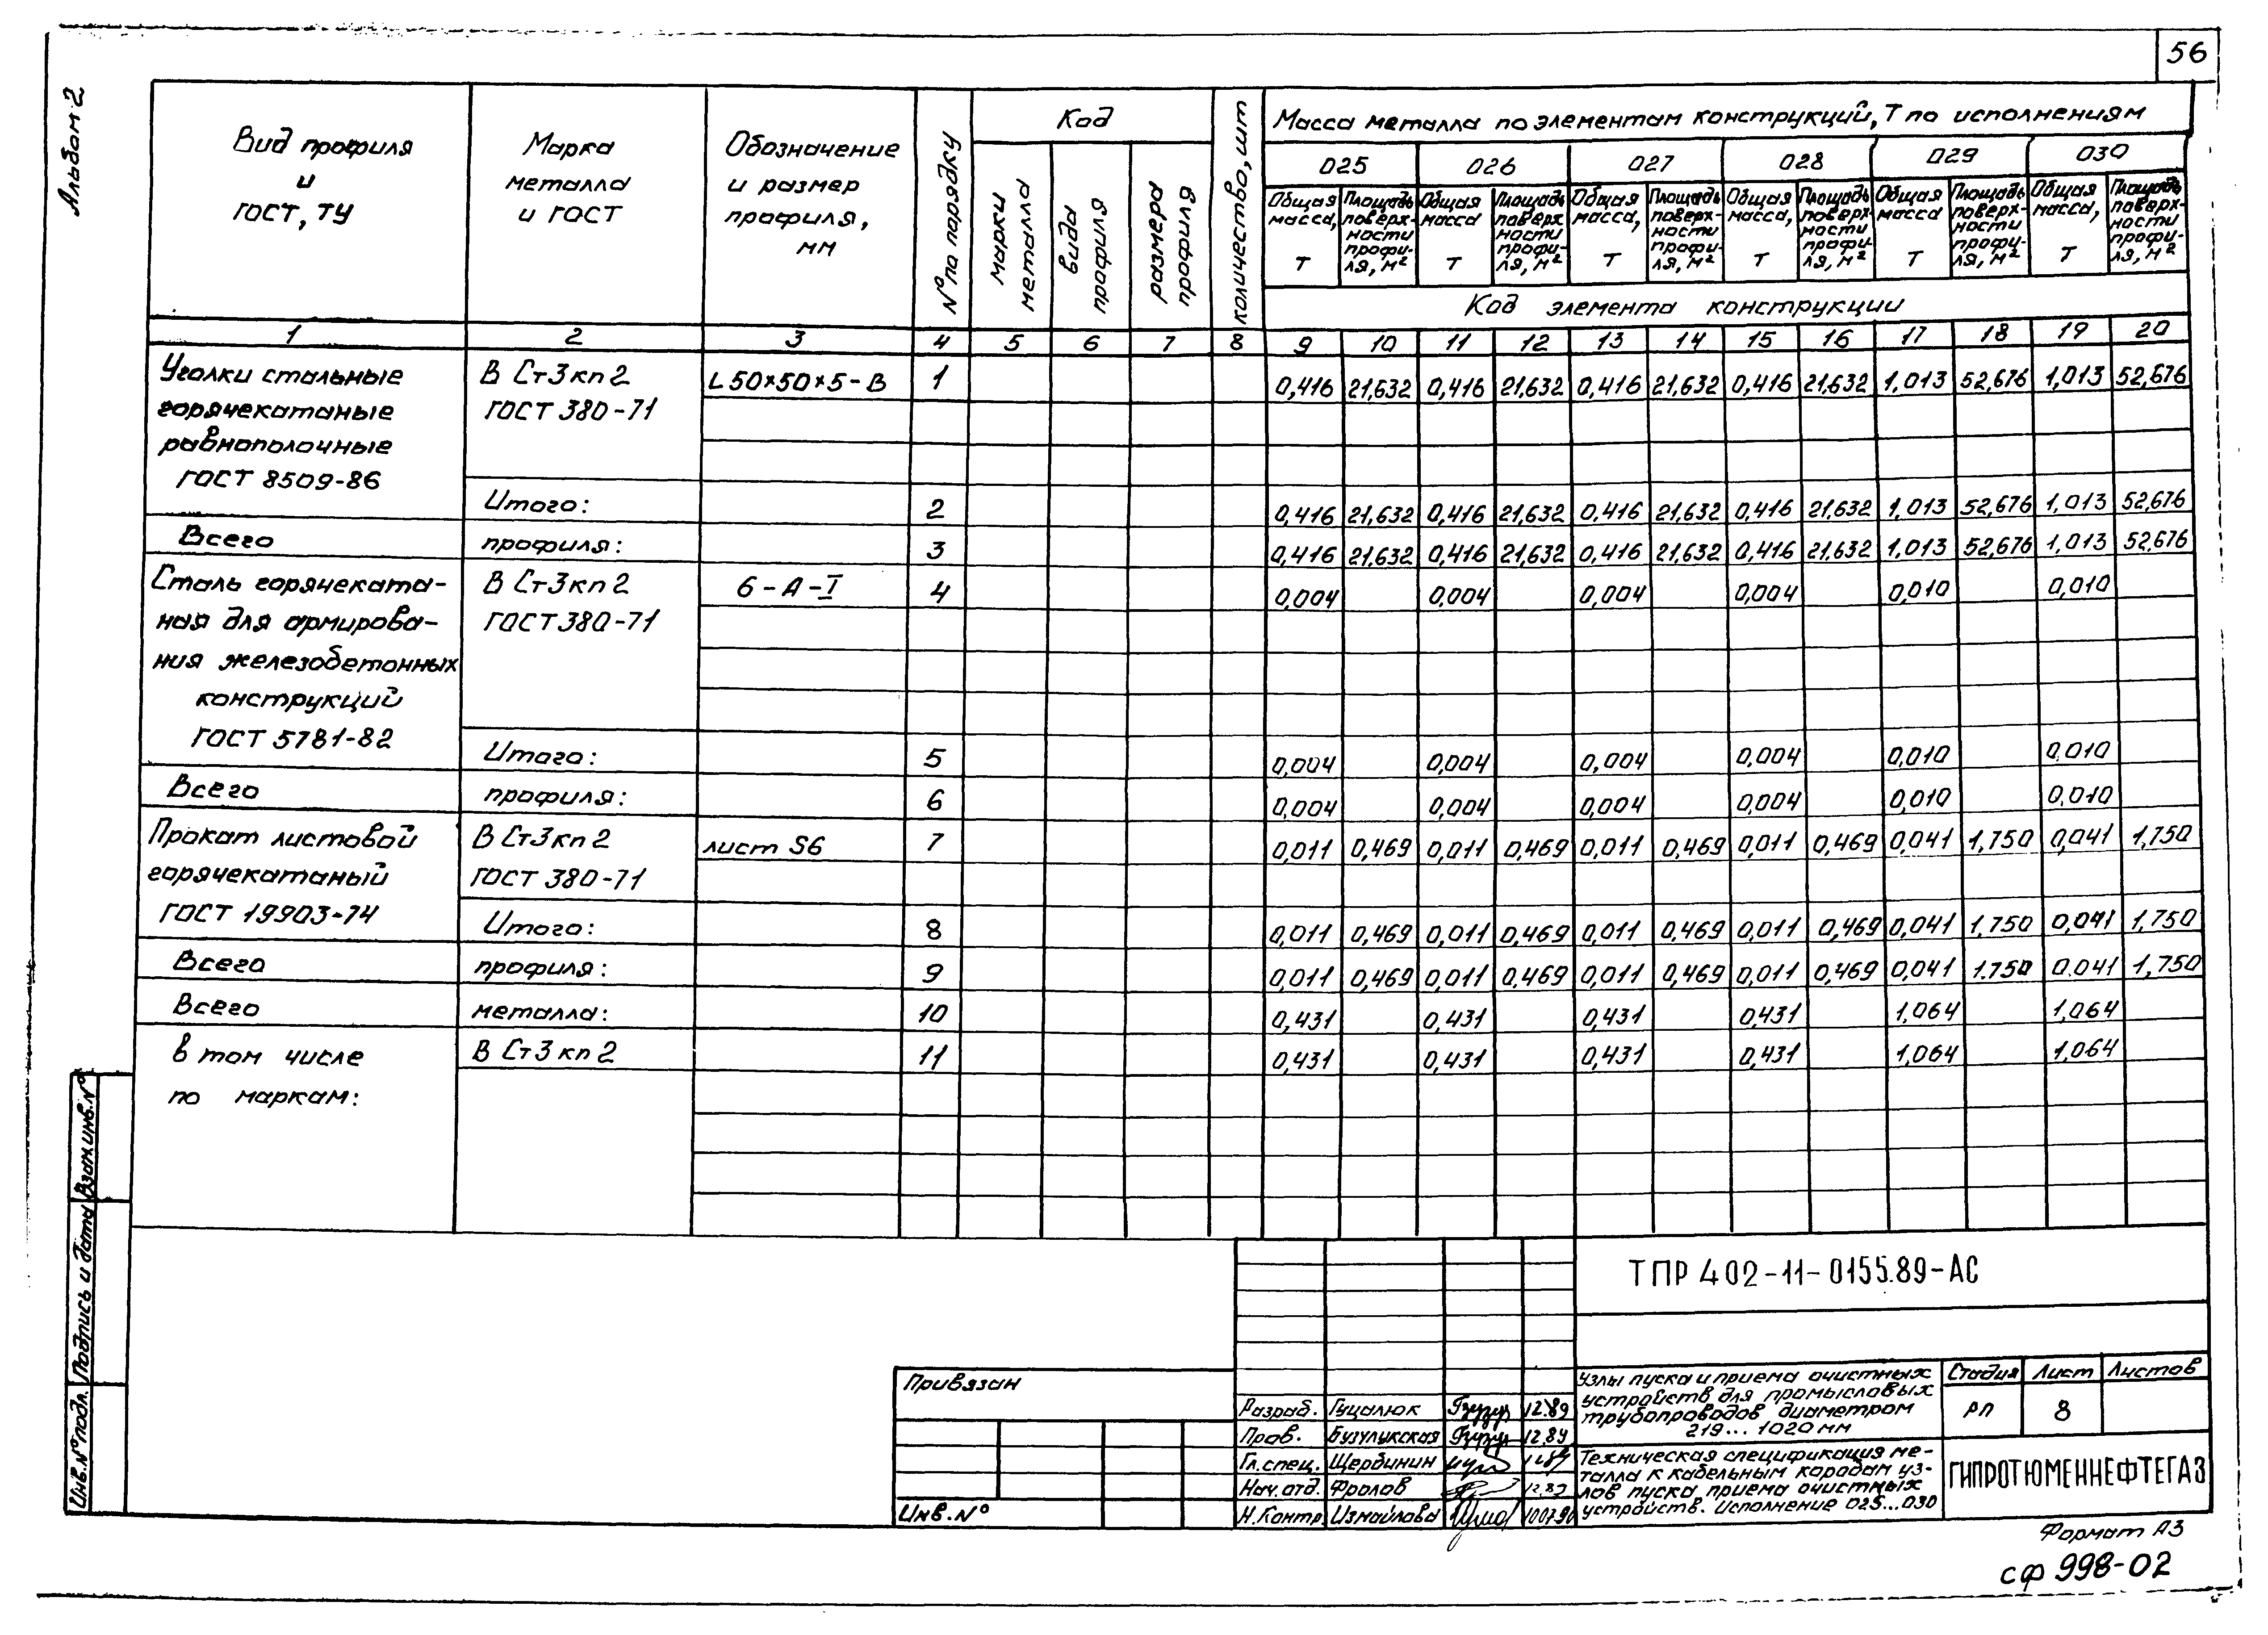 56
Альбом 2
Вид профиля и ГОСТ, ТУ
Марка металла и ГОСТ
Обозначение и размер профиля, мм
N° по порядку
Код
марки металла
вида профиля
размера профиля
количество, шт
Масса металла по элементам конструкций, Т по исполнениям
025 026 027 028 029 030
Общая масса, Т Площадь поверхности профиля, м² Общая масса Т Площадь поверхности профиля, м² Общая масса, Т Площадь поверхности профиля, м² Общая масса, Т Площадь поверхности профиля, м² Общая масса Т Площадь поверхности профиля, м² Общая масса, Т Площадь поверхности профиля, м²
Код элемента конструкции
1 2 3 4 5 6 7 8 9 10 11 12 13 14 15 16 17 18 19 20
Уголки стальные В Ст3кп2 L50×50×5-В 1 0,416 21,632 0,416 21,632 0,416 21,632 0,416 21,632 1,013 52,676 1,013 52,676
горячекатаные ГОСТ 380-71
равнополочные
ГОСТ 8509-86
Итого: 2 0,416 21,632 0,416 21,632 0,416 21,632 0,416 21,632 1,013 52,676 1,013 52,676
Всего профиля: 3 0,416 21,632 0,416 21,632 0,416 21,632 0,416 21,632 1,013 52,676 1,013 52,676
Сталь горячеката- В Ст3кп2 6-А-I 4 0,004 0,004 0,004 0,004 0,010 0,010
ная для армирова- ГОСТ 380-71
ния железобетонных
конструкций
ГОСТ 5781-82
Итого: 5 0,004 0,004 0,004 0,004 0,010 0,010
Всего профиля: 6 0,004 0,004 0,004 0,004 0,010 0,010
Прокат листовой В Ст3кп2 лист S6 7 0,011 0,469 0,011 0,469 0,011 0,469 0,011 0,469 0,041 1,750 0,041 1,750
горячекатаный ГОСТ 380-71
ГОСТ 19903-74
Итого: 8 0,011 0,469 0,011 0,469 0,011 0,469 0,011 0,469 0,041 1,750 0,041 1,750
Всего профиля: 9 0,011 0,469 0,011 0,469 0,011 0,469 0,011 0,469 0,041 1.750 0.041 1,750
Всего металла: 10 0,431 0,431 0,431 0,431 1,064 1,064
в том числе В Ст3кп2 11 0,431 0,431 0,431 0,431 1,064 1,064
по маркам:
Взам.инв.N°
Подпись и дата
Инв.N°подл.
ТПР 402-11-0155.89-АС
Привязан
Инв.N°
Разраб. Гуцалюк 12.89
Пров. Бузулукская 12.89
Гл.спец. Щербинин
Нач.отд. Фролов 12.89
Н.Контр. Измайлова
Узлы пуска и приема очистных
устройств для промысловых
трубопроводов диаметром
219...1020 мм
Стадия Лист Листов
РП 8
Техническая спецификация ме-
талла к кабельным коробам уз-
лов пуска, приема очистных
устройств. Исполнение 025...030
ГИПРОТЮМЕННЕФТЕГАЗ
Формат А3
сф 998-02